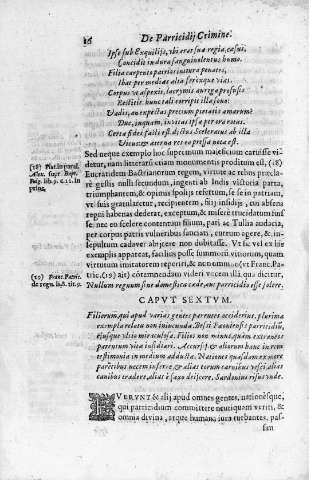 16 De Parricidij Crimine.
Ipse sub Exquilijs, ubi erat sua regia, cæsus,
Concidit in dura sanguinolentus humo.
Filia carpento patrios initura penates,
Ibat per medias alta ferôxque vias.
Corpus ut aspexit, lacrymis auriga profusis
Restitit. hunc tali corripit illa sono:
Vadis, an expectas precium pietatis amarum?
Duc, inquam, invitas ipse per ora rotas.
Certa fides facti est. dictus Sceleratus ab illa
Vicus: & æterna res ea pressa nota est.
Sed neque exemplo hoc supremum maleficium caruisse vi-
detur, nam litteraru etiam monumentis proditum est, (18)
(18) Plut. in paral.
Eucratidem Bactrianorum regem, virtute ac rebus præcla-
rè gestis nulli secundum, ingenti ab Indis victoria parta,
triumphantem, & opimis spolijs refertum, se se in patriam,
ut suis gratularetur, recipientem, filij insidijs, cui absens
regni habenas dederat, exceptum, & misere trucidatum fuis-
se: nec eo scelere contentum filium, pati ac Tullia audacia,
per corpus patris vulneribus sanctum, currum agere, & in-
sepultum cadaver abijcere non dubitasse. Ut sic vel ex his
exemplis appareat, facilius posse summoru vitiorum, quam
virtutum imitatores reperiri, & no immo (ut Franc. Patric.
(19) Franc. Patric.
de regn. li. 8. tit. 9.
(19) ait) cōtemnendam videri vocem illa qua dicitur,
Nullum regnum sine domestica cæde, aut parricidio esse solere.
CAPUT SEXTUM.
Filiorum, qui apud varias gentes parentes occiderint, plurima
exempla relatu non iniucunda. Bessi Paeonensis parricidiū,
eiusque ultio miraculosa. Filij non minus, quàm extraneos
parentum vitæ insidiari. Accursij & aliorum hanc in rem
testimonia in medium adducta. Nationes quasdam ex more
parētibus necem inferre, & alias eorum carnibus vesci, alias
canibus tradere, alias è saxo deijcere. Sardonius risus unde.
FVERVNT & alij apud omnes gentes, nationesque,
qui parricidium committere neutiquam veriti, &
omnia divina, atque humana iura turbantes, pas-
sim